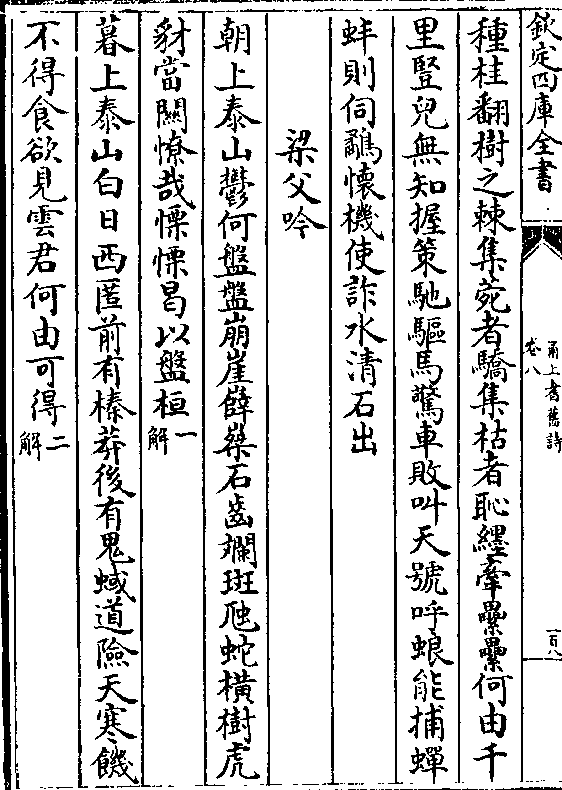 欽定四庫全書
甬上耆舊詩
卷八
一百八
種桂翻樹之棘集菀者驕集枯者恥纆牽纍纍何由千
里豎兒無知握策馳驅馬驚車敗叫天號呼蜋能捕蟬
蚌則伺鷸懷機使詐水清石出
梁父吟
朝上泰山鬱何盤盤崩崖薛蘖石齒斕斑虺蛇橫樹虎
豺當關憭哉慄慄曷以盤桓一解
暮上泰山白日西匿前有榛莽後有鬼蜮道險天寒饑
不得食欲見雲君何由可得二解